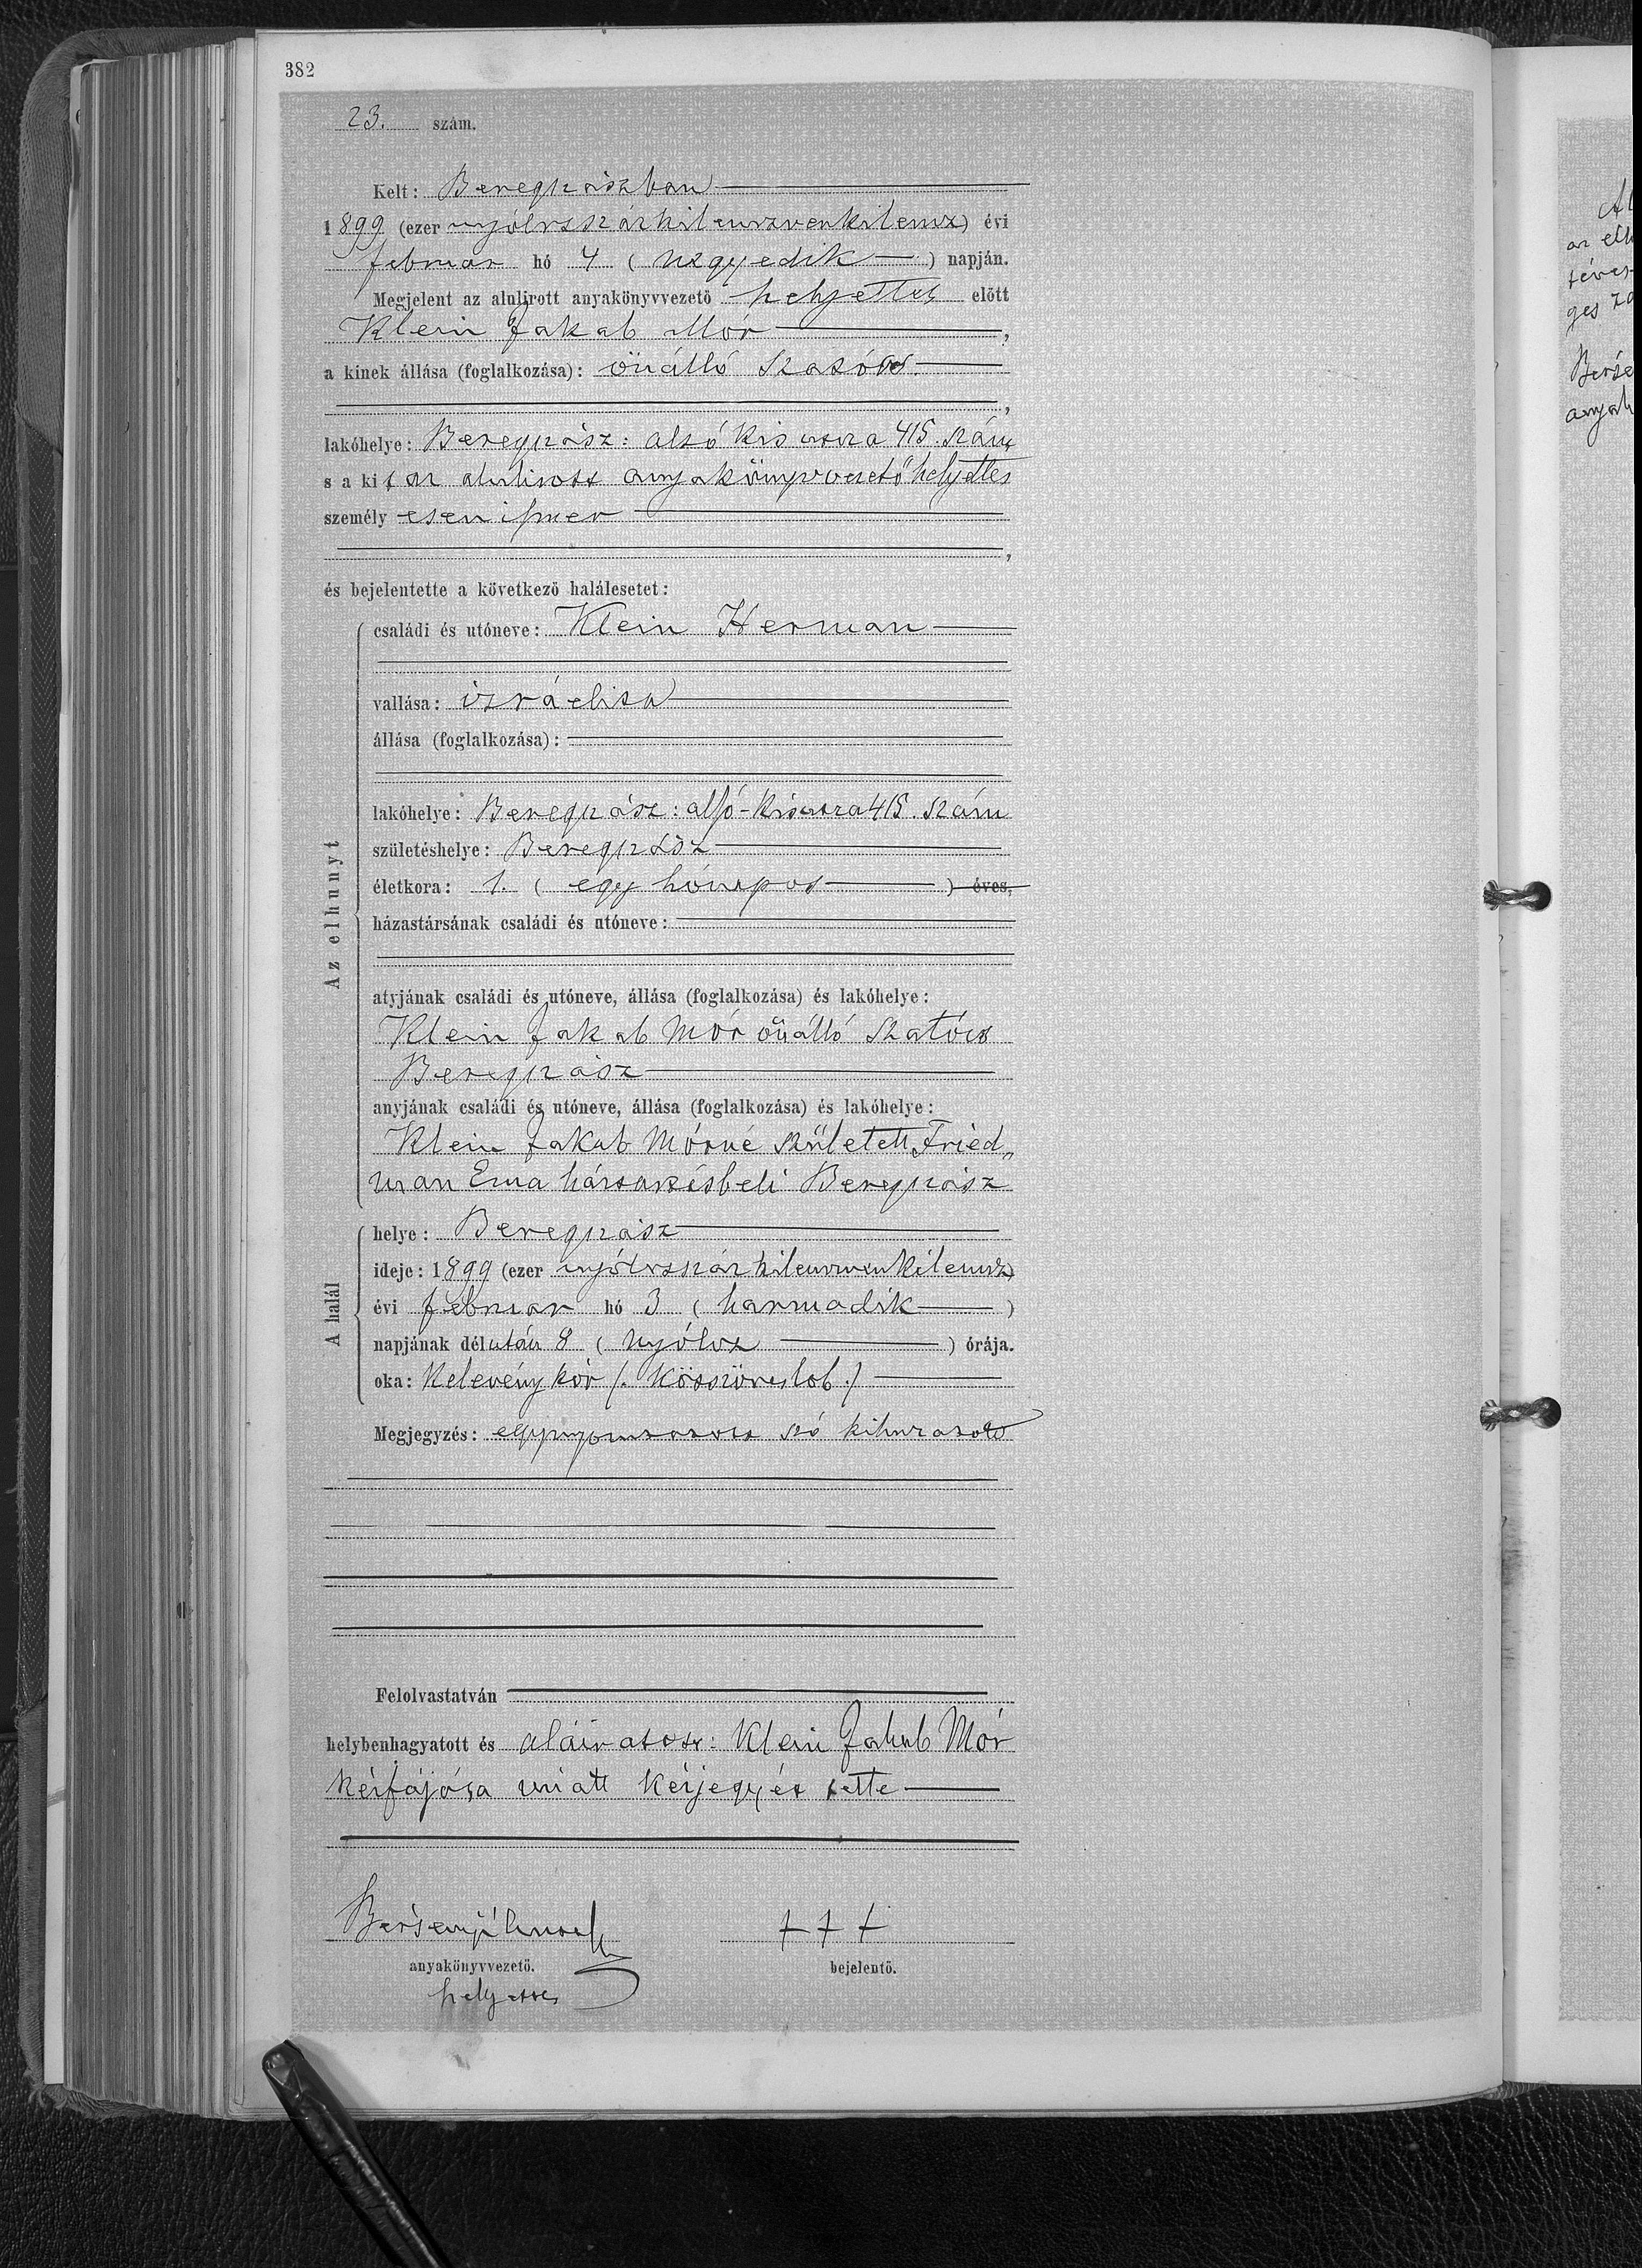 382
23. szám.
Kelt: Beregszászban
1899 (ezer nyólcszázkilenczvenkilencz) évi
február hó 4 (negyedik) napján.
Megjelent az alulirott anyakönyvvezető helyettes előtt
Klein Jakab Mór,
a kinek állása (foglalkozása): önálló szatócs
,
lakóhelye: Beregszász: alsó kis utcza 415. szám
s a kit az alulirott anyakönyvvezető helyettes
személyesen ismer
,
és bejelentette a következő halálesetet:
Az elhunyt
családi és utóneve: Klein Herman
vallása: izráelita
állása (foglalkozása):
lakóhelye: Beregszász: alsó-kis utcza 415. szám
születéshelye: Beregszász
életkora: 1. (egy hónapos) éves,
házastársának családi és utóneve:
atyjának családi és utóneve, állása (foglalkozása) és lakóhelye:
Klein Jakab Mór önálló szatócs
Beregszász
anyjának családi és utóneve, állása (foglalkozása) és lakóhelye:
Klein Jakab Mórné született Fried„
man Ema háztartásbeli Beregszász
A halál
helye: Beregszász
ideje: 1899 (ezer nyólcszázkilenczvenkilencz)
évi február hó 3 (harmadik)
napjának délután 8 (nyólcz) órája.
oka: Kelevénykór /.
Megjegyzés: egy nyomtatott szó kihuzatott
Felolvastatván
helybenhagyatott és aláiratott: Klein Jakab Mór
kézfájása miatt kézjegyét tette
+++
anyakönyvvezető. bejelentő.
helyettes